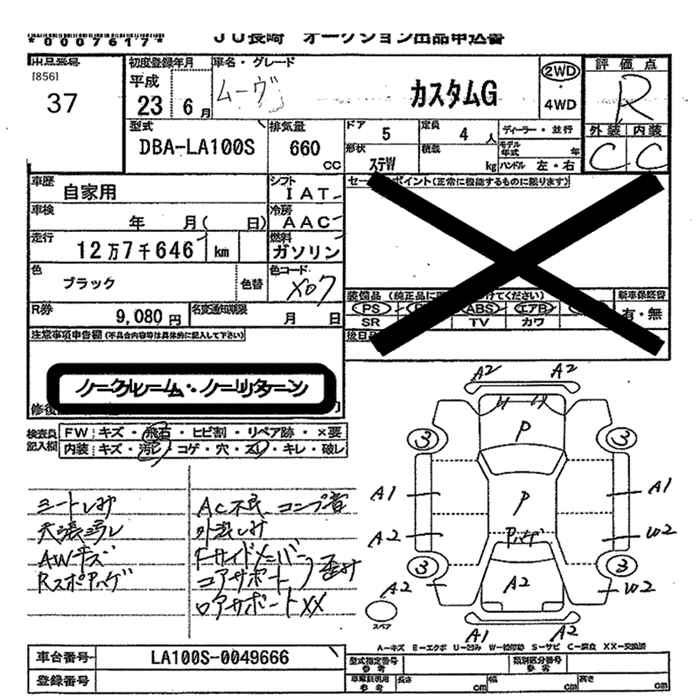 *0007617*
JU長崎 オークション出品申込書
[856]
37
初度登録年月
平成
23 6月
車名・グレード
ムーヴ カスタムG
2WD
・
4WD
評価点
R
外装 内装
C C
型式
DBA-LA100S
排気量
660
CC
ドア 5
定員 4人
形状 ステW
積載 kg
ディーラー・並行
モデル年式 年
ハンドル 左・右
車歴 自家用
シフト IAT
車検 年 月( 日)
冷房 AAC
走行 12万7千646 km
燃料 ガソリン
色 ブラック 色替
色コード X07
R券 9,080円
名変通知期限 月 日
セールスポイント(正常に機能するものに限ります)
装備品 (純正品に
けてください)
PS ABS エアB
SR TV カワ
新車保証書
有・無
注意事項申告欄(不具合内容等は具体的に記入して下さい)
ノークレーム・ノーリターン
検査員記入欄
FW キズ・飛石・ヒビ割・リペア跡・×要
内装 キズ・汚レ・コゲ・穴・スレ・キレ・破レ
シートしみ
天張汚レ
AWキズ
AC不良 コンプ音
外装しみ
Fサイドメンバー
コアサポート 歪み
ロアサポートXX
A2 A2
3 P 3
A1 P A1
A2 W2
3 A2 3
A2 W2
スペア
A1 A2
A-キズ E-エクボ U-凹み W-補修跡 S-サビ C-腐食 XX-交換済
車台番号 LA100S-0049666
登録番号
型式指定番号 参考
類別区分番号 参考
車庫証明用 参考 長さ cm 幅 cm 高さ cm